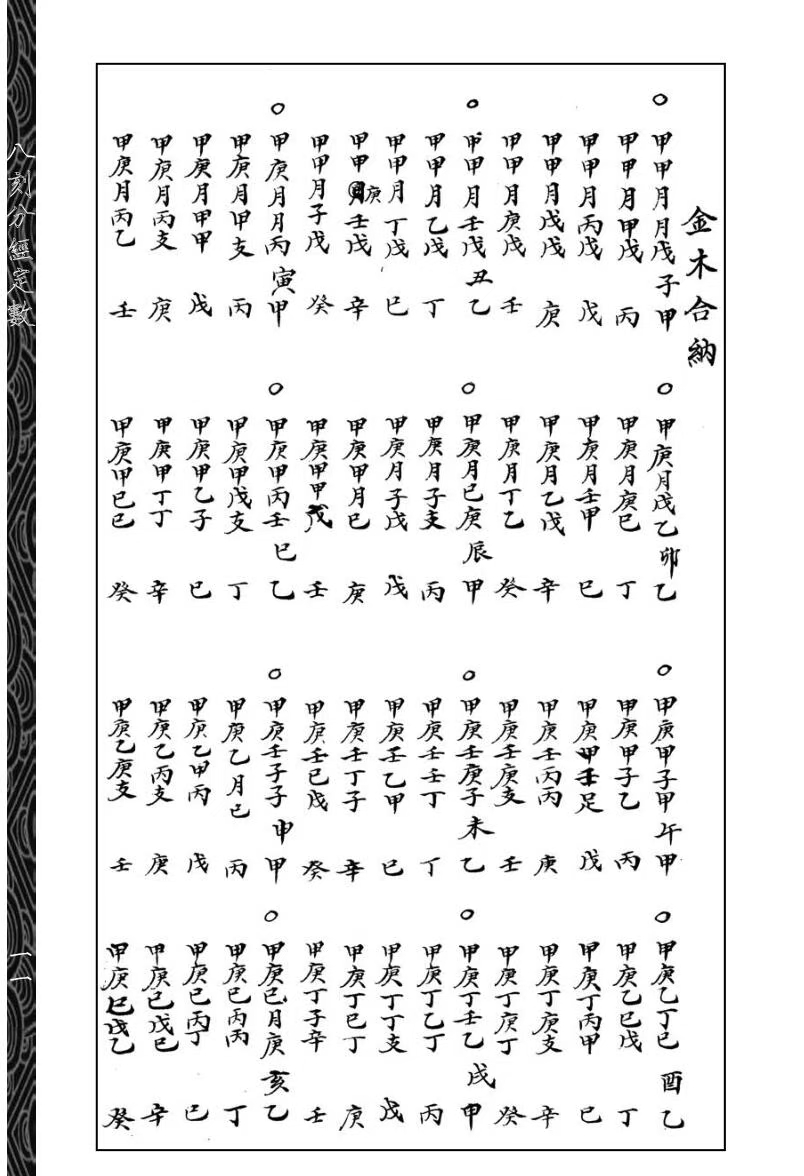 金木合納
甲甲月月戊子甲
甲甲月甲戊丙
甲甲月丙戊戊
甲甲月戊戊庚
甲甲月庚戊壬
甲甲月壬戊丑乙
甲甲月乙戊丁
甲甲月丁戊巳
甲甲庚壬戊辛
甲甲月子戊癸
甲庚月月丙寅甲
甲庚月甲支丙
甲庚月甲甲戊
甲庚月丙支庚
甲庚月丙乙壬
甲庚月戊乙卯乙
甲庚月庚巳丁
甲庚月壬甲巳
甲庚月乙戊辛
甲庚月丁乙癸
甲庚月巳庚辰甲
甲庚月子支丙
甲庚月子戊戊
甲庚甲月巳庚
甲庚甲甲戊壬
甲庚甲丙壬巳乙
甲庚甲戊支丁
甲庚甲乙子巳
甲庚甲丁丁辛
甲庚甲巳巳癸
甲庚甲子甲午甲
甲庚甲子乙丙
甲庚甲壬足戊
甲庚壬丙丙庚
甲庚壬庚支壬
甲庚壬庚子未乙
甲庚壬壬丁丁
甲庚壬乙甲巳
甲庚壬丁子辛
甲庚壬巳戊癸
甲庚壬子子申甲
甲庚乙月巳丙
甲庚乙甲丙戊
甲庚乙丙支庚
甲庚乙庚支壬
甲庚乙丁巳酉乙
甲庚乙巳戊丁
甲庚丁丙甲巳
甲庚丁庚支辛
甲庚丁庚丁癸
甲庚丁壬乙戌甲
甲庚丁乙丁丙
甲庚丁丁支戊
甲庚丁巳丁庚
甲庚丁子辛壬
甲庚巳月庚亥乙
甲庚巳丙丙丁
甲庚巳丙丁巳
甲庚巳戊巳辛
甲庚巳戊乙癸
八刻分經定數